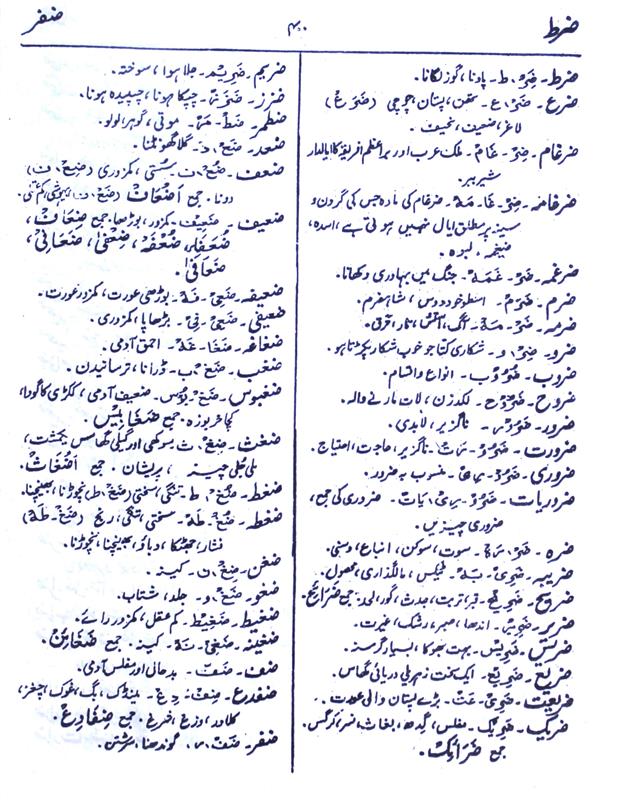 ضرط
۴۰۰
ضفر
ضرط - ضَرْ، ط - پادنا، گوز لگانا.
ضرع - ضَرْ، ع - تھن، پستان، چوچی (ضَرَعْ)
لاغر، ضعیف، نحیف.
ضرغام - ضِرْ - غَامْ - ملک عرب اور براعظم افریقہ کا ایالدار
شیر ببر.
ضرغامہ - ضِرْ - غَا - مَہْ - ضرغام کی مادہ جس کی گردن و
سینہ پر مطلق ایال نہیں ہوتی ہے، اسدہ،
ضیغمہ. لبوہ.
ضرغمہ - ضَرْ - غَمَہْ - جنگ میں بہادری دکھانا.
ضرم - ضَرْمْ - اسطوخودوس، شاہسفرم.
ضرمہ - ضَرْ - مَہْ - آگ، آتش، نار، آذر.
ضرو - ضِرْ، و - شکاری کتا جو خوب شکار پکڑتا ہو.
ضروب - ضُرُوْب - انواع و اقسام.
ضروح - ضَرُوْح - لکدزن، لات مارنے والہ.
ضرور - ضَرُوْر - ناگزیر، لابدی.
ضرورت - ضَرُوْ - رَتْ - ناگزیر، حاجت، احتیاج.
ضروری - ضَرُوْ - رِیْ - منسوب بہ ضرور.
ضروریات - ضَرُوْ - رِیْ، یَات - ضروری کی جمع،
ضروری چیزیں.
ضرہ - ضَرْ، رَہْ - سوت، سوکن، انباغ، وسنی.
ضریبہ - ضَرِیْ - بَہْ - ٹیکس، مالگذاری، محصول.
ضریح - ضَرِیْح - قبر، تربت، جدث، گور، لحد. جمع ضَرَائِحْ.
ضریر - ضَرِیْر - اندھا، صبر، رشک، غیرت.
ضریس - ضَرِیْس - بہت بھوکا، بسیار گرسنہ.
ضریع - ضَرِیْع - ایک سخت زہریلی دریائی گھاس.
ضریعت - ضَرِیْ - عَتْ - بڑے پستان والی عورت.
ضریک - ضَرِیْک - مفلس، گدھ، بغاث، نسر، کرگس.
جمع ضَرَائِک.
ضریم - ضَرِیْم - جلا ہوا، سوختہ.
ضزز - ضَزَزْ - چپکا ہونا، چسپیدہ ہونا.
ضطمر - ضَطْ - مَرْ - موتی، گوہر، لولو.
ضعد - ضَعْ، د - گلا گھونٹنا.
ضعف - ضُعْ، ف - سستی، کمزوری (ضِعْ، ف)
دونا. جمع اَضْعَاف (ضَعْ، ف) بیہوشی، کم عقلی.
ضعیف - ضَعِیْف - کمزور، بوڑھا. جمع ضِعَاف،
ضُعَفَاء، ضَعَفَہ، ضَعْفٰی، ضَعَافٰی،
ضَعَافٰی.
ضعیفہ - ضَعِیْ - فَہْ - بوڑھی عورت، کمزور عورت.
ضعیفی - ضَعِیْ - فِیْ - بڑھاپا، کمزوری.
ضغاغہ - ضَغَا - غَہْ - احمق آدمی.
ضغب - ضَغْ، ب - ڈرانا، ترسانیدن.
ضغبوس - ضُغْ - بُوْس - ضعیف آدمی، ککڑی کا گودا،
کچا خربوزہ. جمع ضَغَابِیْس.
ضغث - ضِغْ، ث - سوکھی اور گیلی گھاس یکمشت،
ملی جلی چیز، پریشان. جمع اَضْغَاث.
ضغط - ضُغْ، ط - تنگی، سختی (ضَغْ، ط) نچوڑنا، بھینچنا.
ضغطہ - ضُغْ - طَہْ - سختی، تنگی، رنج (ضَغْ - طَہْ)
فشار، جھٹکا، دباؤ، بھینچنا، نچوڑنا.
ضغن - ضِغْ، ن - کینہ.
ضغو - ضَغْ، و - جلد، شتاب.
ضغیط - ضَغِیْط - کم عقل، کمزور رائے.
ضغینہ - ضَغِیْ - نَہْ - کینہ. جمع ضَغَائِن.
ضف - ضَفْ - بدحال اور مفلس آدمی.
ضفدع - ضِفْ، دِع - مینڈک، بگ، غوک، چغز،
کلاور، وزغ، خبرغ. جمع ضَفَادِع.
ضفر - ضَفْ، ر - گوندھنا، سرشتن.